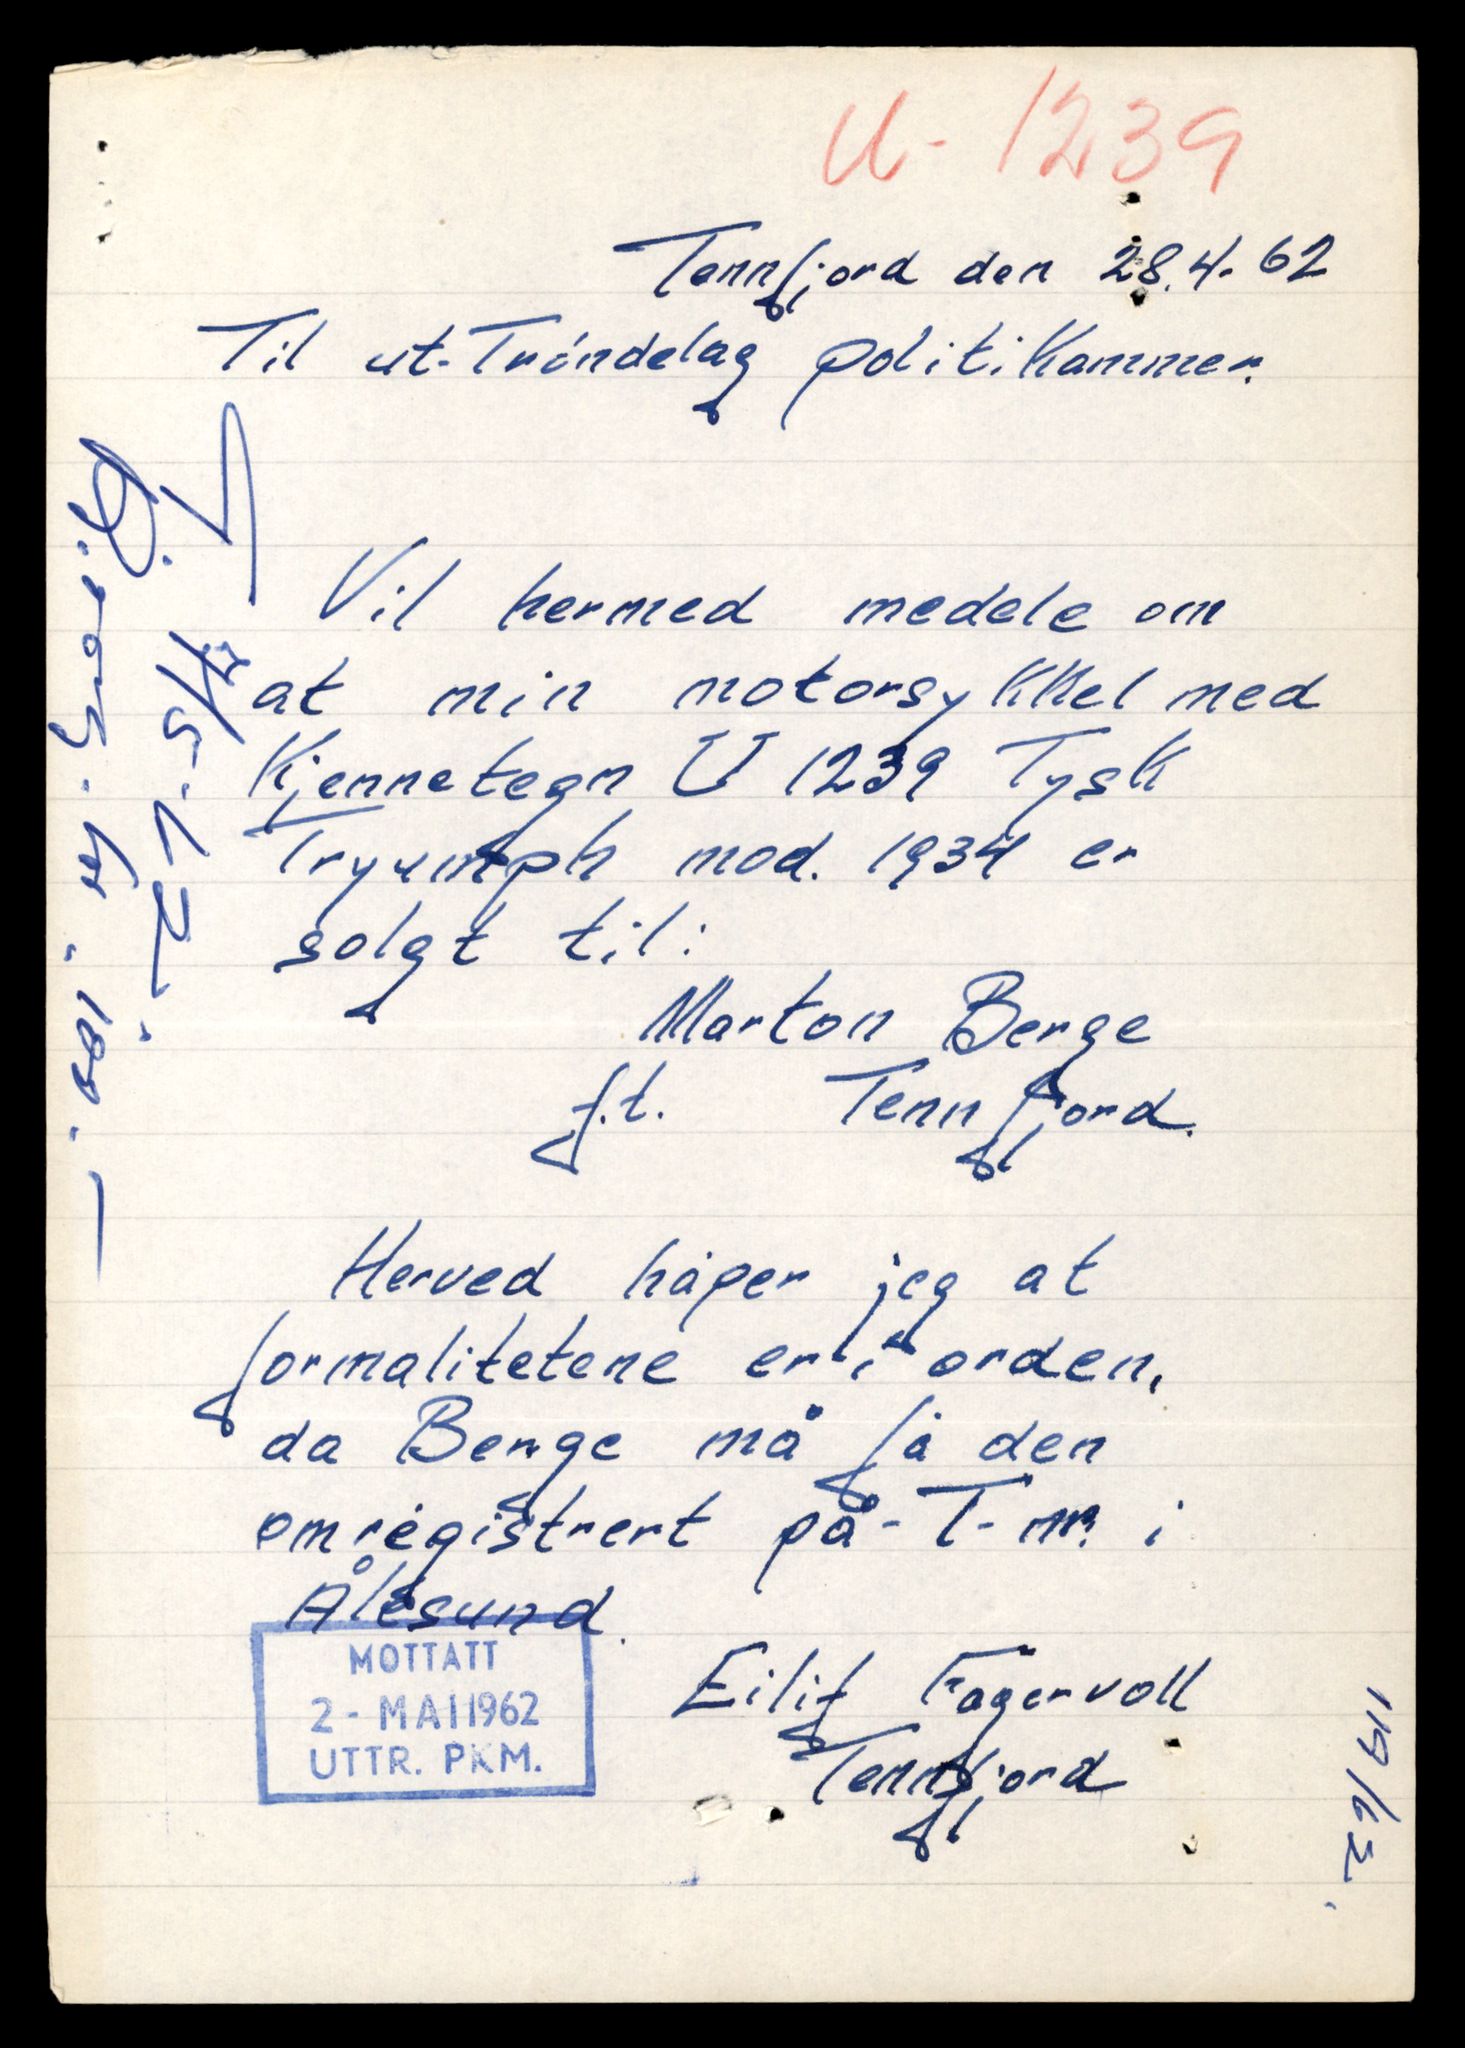 U-1239
Tennfjord den 28.4.62
Til ut-Tröndelag politikammer.
Vil hermed medele om
at min motorsykkel med
Kjennetegn U 1239 Tysk
Tryumph mod. 1934 er
solgt til:
Marton Berge
f.t. Tennfjord.
Herved håper jeg at
formalitetene er i orden,
da Berge må få den
omregistrert på-T-nr. i
Ålesund.
Eilif Fagervoll
Tennfjord
MOTTATT
2-MAI1962
UTTR. PKM.
119/62.